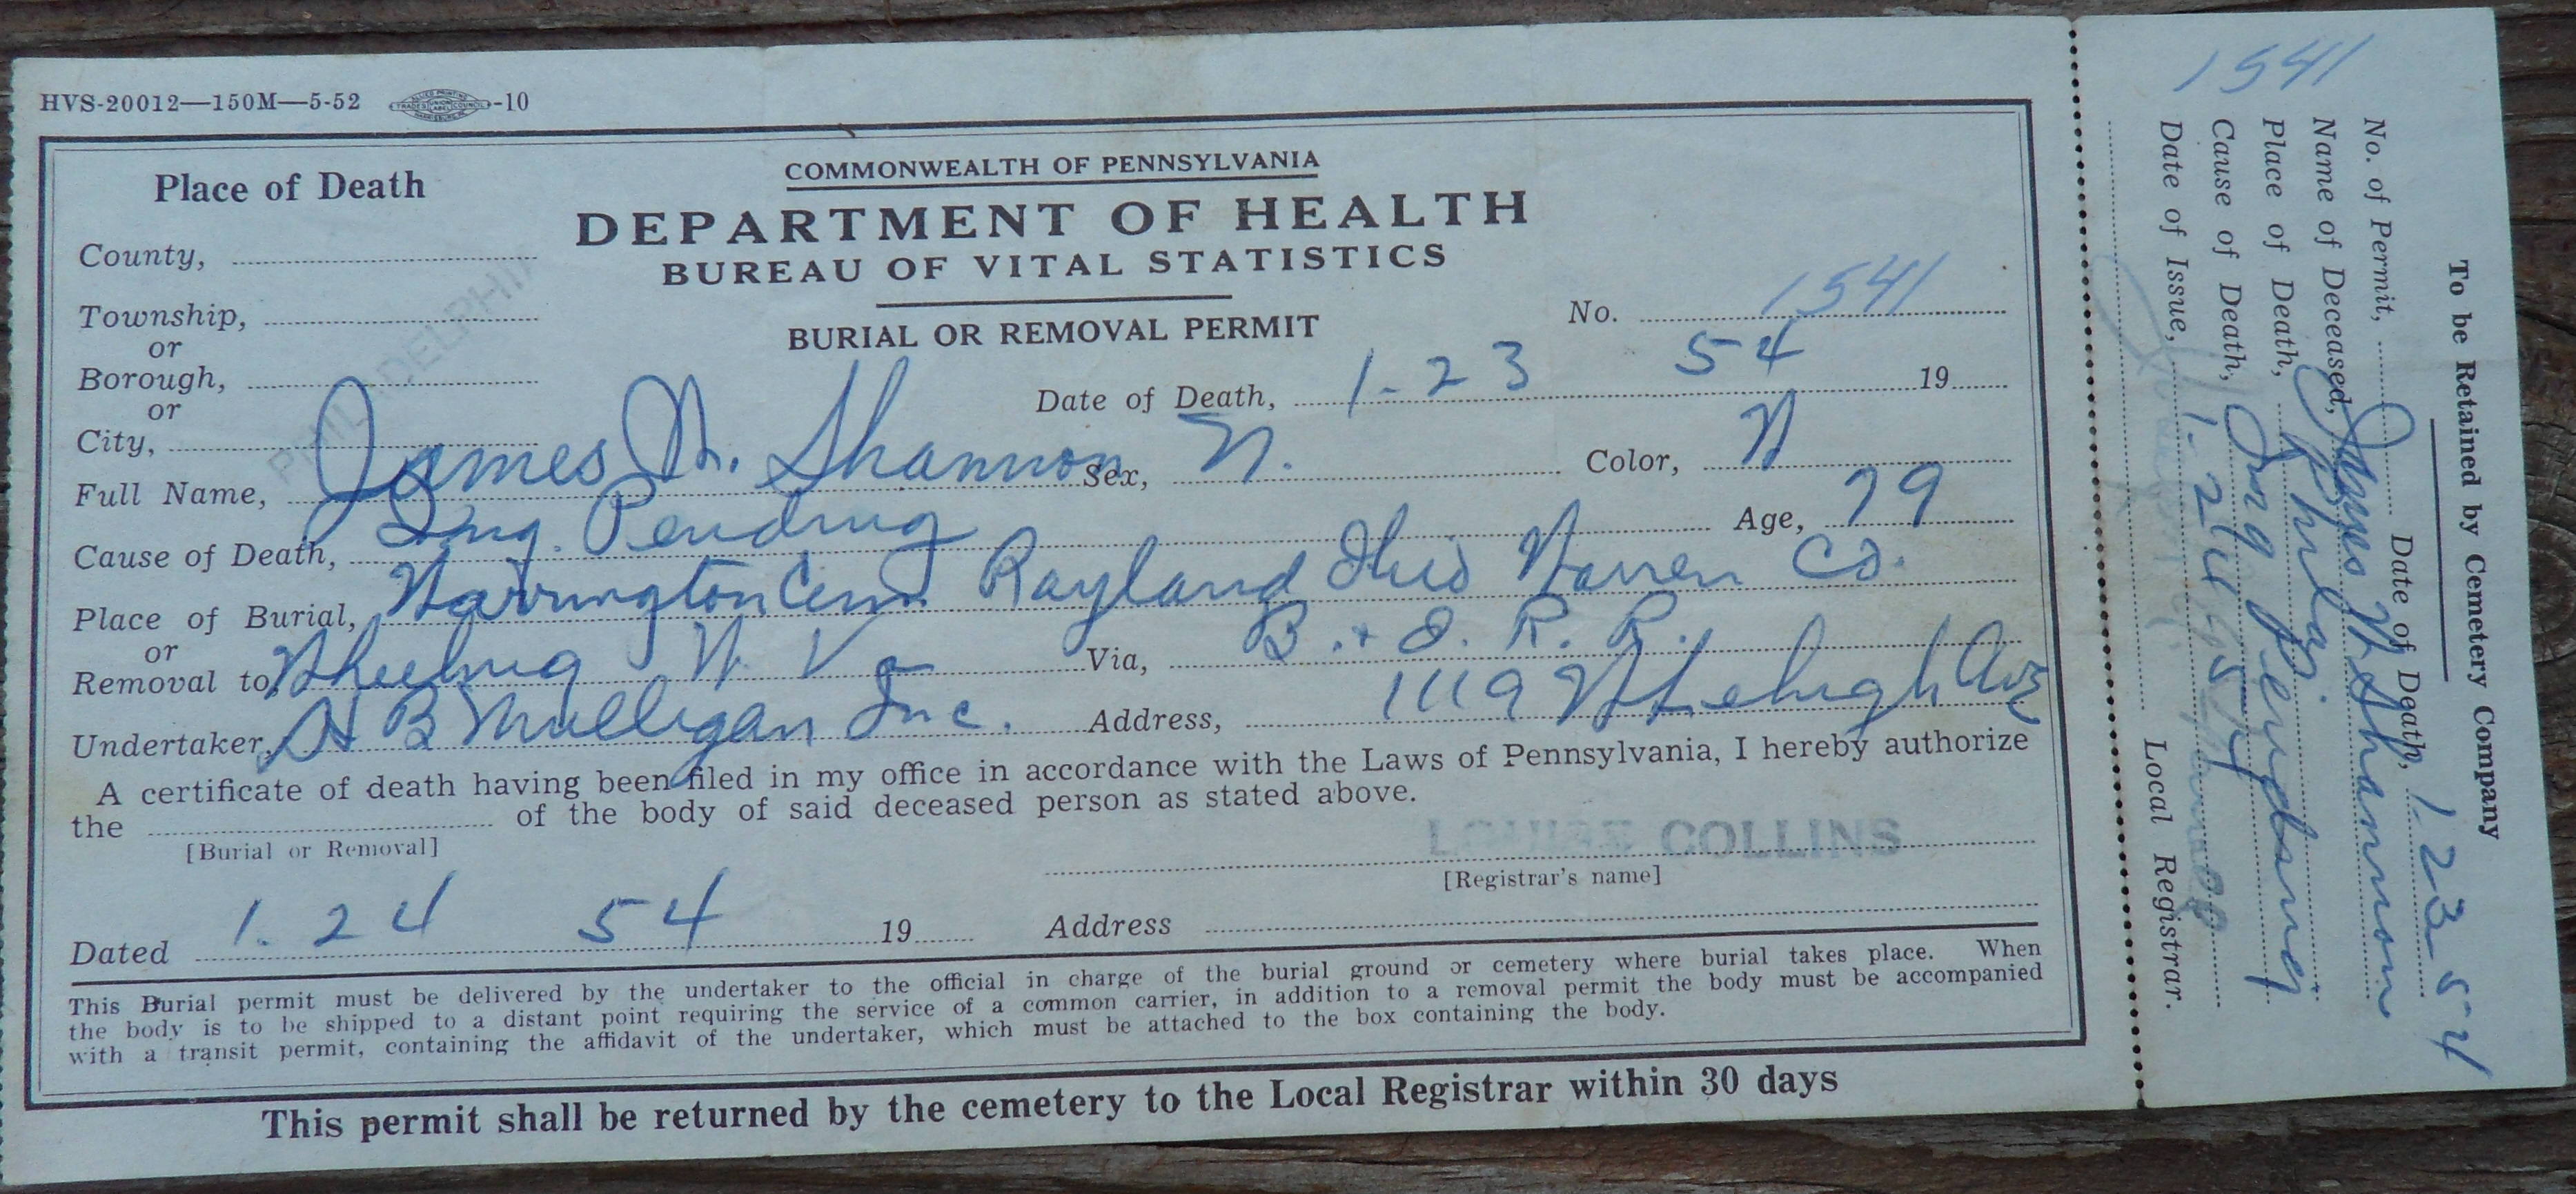 HVS-20012—150M—5-52 ALLIED PRINTING TRADES UNION LABEL COUNCIL HARRISBURG, PA. -10
Place of Death
COMMONWEALTH OF PENNSYLVANIA
DEPARTMENT OF HEALTH
BUREAU OF VITAL STATISTICS
BURIAL OR REMOVAL PERMIT
No. 1541
County,
Township,
or
Borough,
or
City,
PHILADELPHIA
Date of Death, 1-23 54 19
Full Name, James W. Shannon Sex, M. Color, W
Cause of Death, Inq. Pending Age, 79
Place of Burial, Cem. Rayland Ohio Warren Co.
or
Removal to, Wheeling W. Va Via, B. & O. R. R.
Undertaker, H B Mulligan Inc. Address, 1119 W Lehigh Ave
A certificate of death having been filed in my office in accordance with the Laws of Pennsylvania, I hereby authorize
the of the body of said deceased person as stated above.
[Burial or Removal]
LOUISE COLLINS
[Registrar's name]
Dated 1. 24 54 19 Address
This Burial permit must be delivered by the undertaker to the official in charge of the burial ground or cemetery where burial takes place. When
the body is to be shipped to a distant point requiring the service of a common carrier, in addition to a removal permit the body must be accompanied
with a transit permit, containing the affidavit of the undertaker, which must be attached to the box containing the body.
This permit shall be returned by the cemetery to the Local Registrar within 30 days
To be Retained by Cemetery Company
1541
No. of Permit, Date of Death, 1 23 54
Name of Deceased, James W Shannon
Place of Death, Phila.
Cause of Death, Inq Pending
Date of Issue, 1-24 54
Local Registrar.